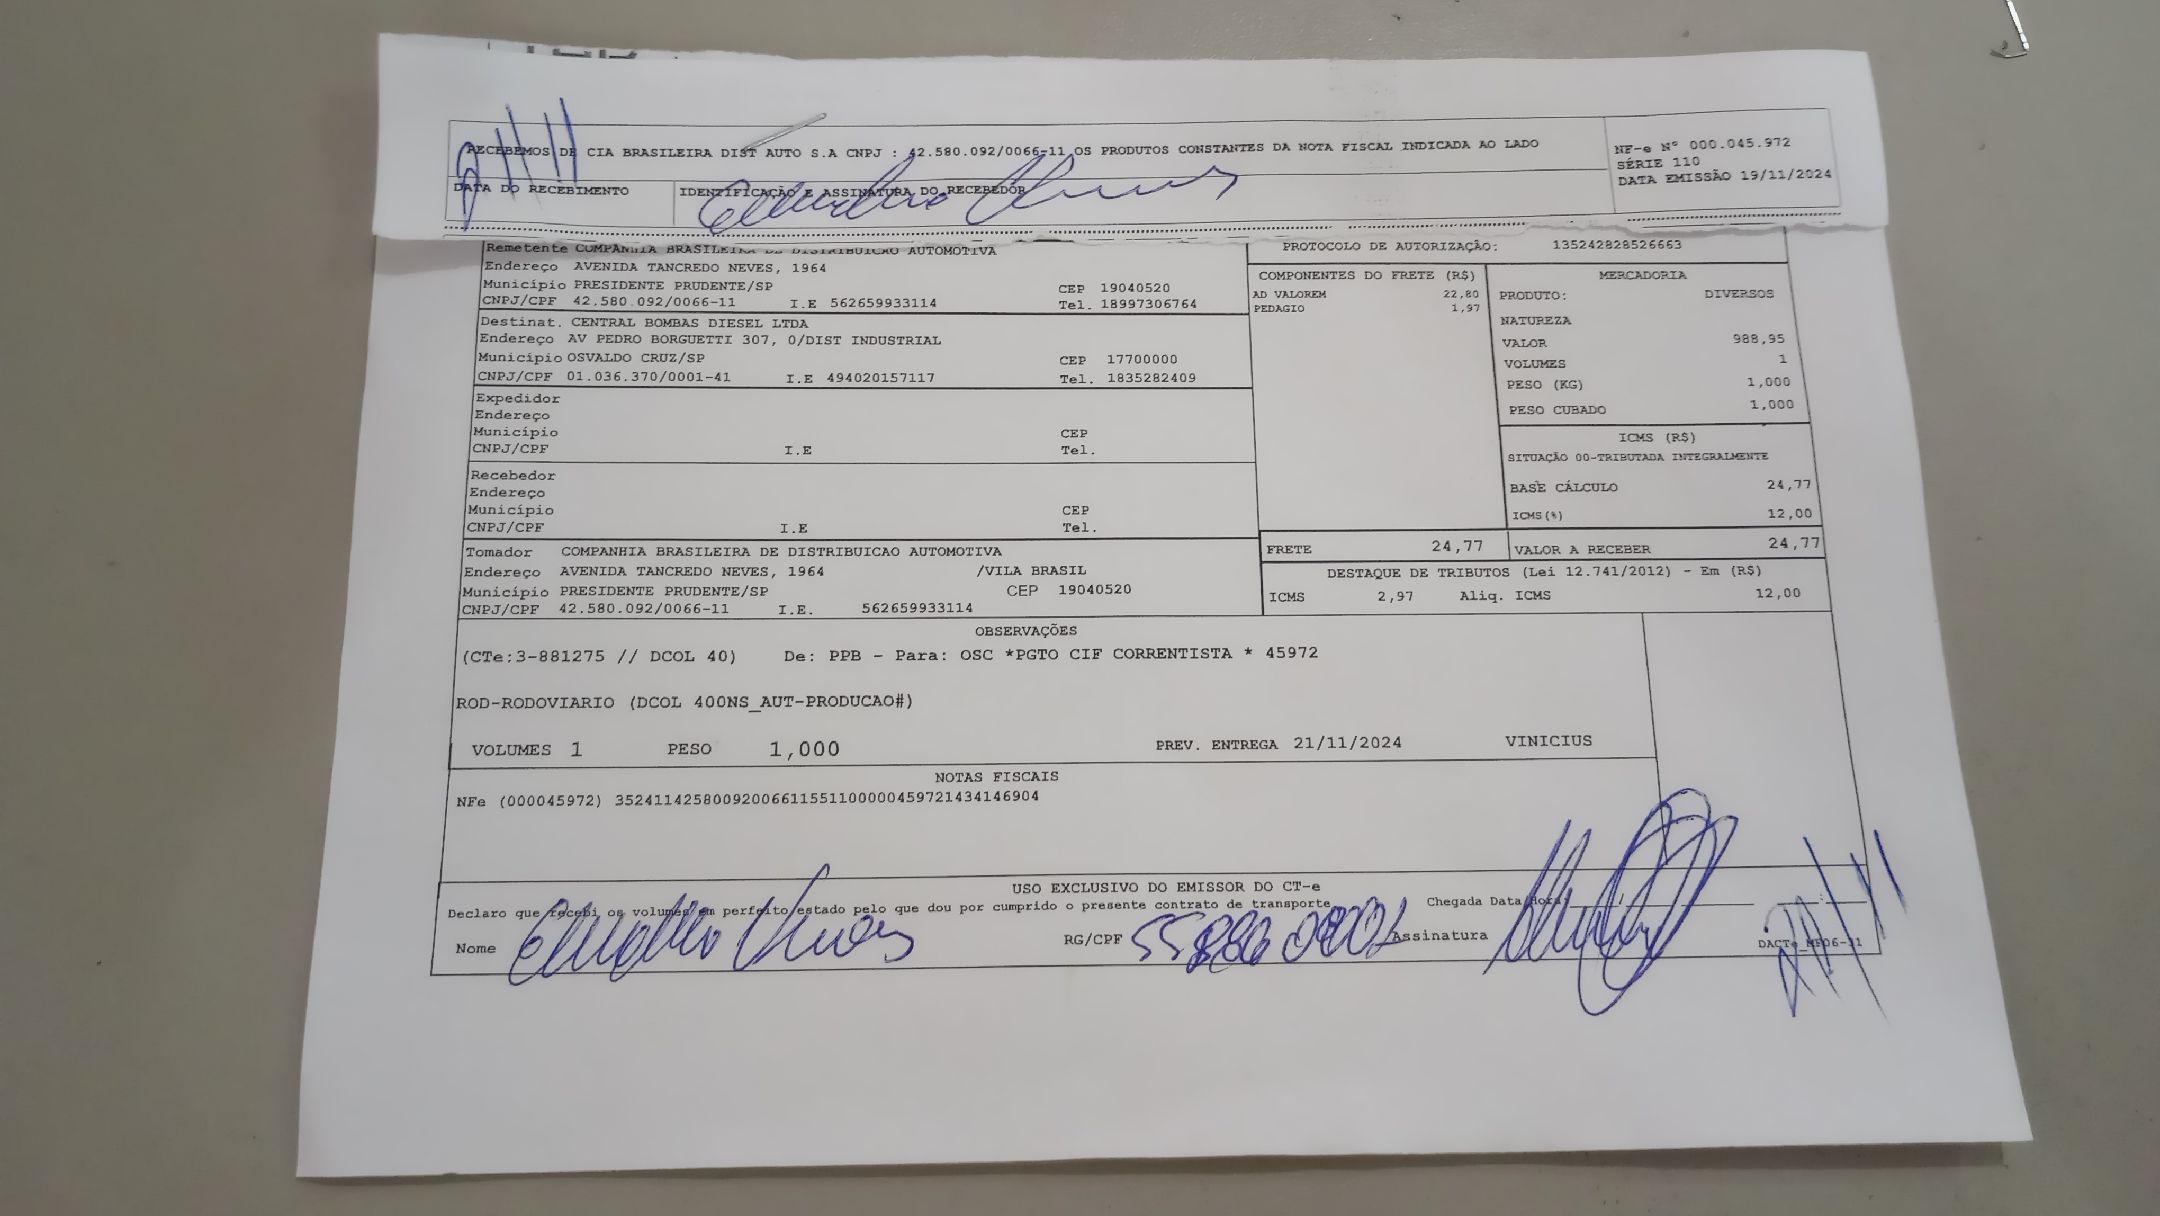 RECEBEMOS DE CIA BRASILEIRA DIST AUTO S.A CNPJ : 42.580.092/0066-11 OS PRODUTOS CONSTANTES DA NOTA FISCAL INDICADA AO LADO
NF-e Nº 000.045.972
SÉRIE 110
DATA EMISSÃO 19/11/2024
DATA DO RECEBIMENTO IDENTIFICAÇÃO E ASSINATURA DO RECEBEDOR
Remetente COMPANHIA BRASILEIRA DE DISTRIBUICAO AUTOMOTIVA
Endereço AVENIDA TANCREDO NEVES, 1964
Município PRESIDENTE PRUDENTE/SP CEP 19040520
CNPJ/CPF 42.580.092/0066-11 I.E 562659933114 Tel. 18997306764
Destinat. CENTRAL BOMBAS DIESEL LTDA
Endereço AV PEDRO BORGUETTI 307, 0/DIST INDUSTRIAL
Município OSVALDO CRUZ/SP CEP 17700000
CNPJ/CPF 01.036.370/0001-41 I.E 494020157117 Tel. 1835282409
Expedidor
Endereço
Município CEP
CNPJ/CPF I.E Tel.
Recebedor
Endereço
Município CEP
CNPJ/CPF I.E Tel.
Tomador COMPANHIA BRASILEIRA DE DISTRIBUICAO AUTOMOTIVA
Endereço AVENIDA TANCREDO NEVES, 1964 /VILA BRASIL
Município PRESIDENTE PRUDENTE/SP CEP 19040520
CNPJ/CPF 42.580.092/0066-11 I.E. 562659933114
PROTOCOLO DE AUTORIZAÇÃO: 135242828526663
COMPONENTES DO FRETE (R$)
AD VALOREM 22,80
PEDAGIO 1,97
MERCADORIA
PRODUTO: DIVERSOS
NATUREZA
VALOR 988,95
VOLUMES 1
PESO (KG) 1,000
PESO CUBADO 1,000
ICMS (R$)
SITUAÇÃO 00-TRIBUTADA INTEGRALMENTE
BASE CÁLCULO 24,77
ICMS(%) 12,00
FRETE 24,77 VALOR A RECEBER 24,77
DESTAQUE DE TRIBUTOS (Lei 12.741/2012) - Em (R$)
ICMS 2,97 Aliq. ICMS 12,00
OBSERVAÇÕES
(CTe:3-881275 // DCOL 40) De: PPB - Para: OSC *PGTO CIF CORRENTISTA * 45972
ROD-RODOVIARIO (DCOL 400NS_AUT-PRODUCAO#)
VOLUMES 1 PESO 1,000 PREV. ENTREGA 21/11/2024 VINICIUS
NOTAS FISCAIS
NFe (000045972) 35241142580092006611551100000459721434146904
USO EXCLUSIVO DO EMISSOR DO CT-e
Declaro que recebi os volumes em perfeito estado pelo que dou por cumprido o presente contrato de transporte
Chegada Data/Hora:
Nome RG/CPF Assinatura